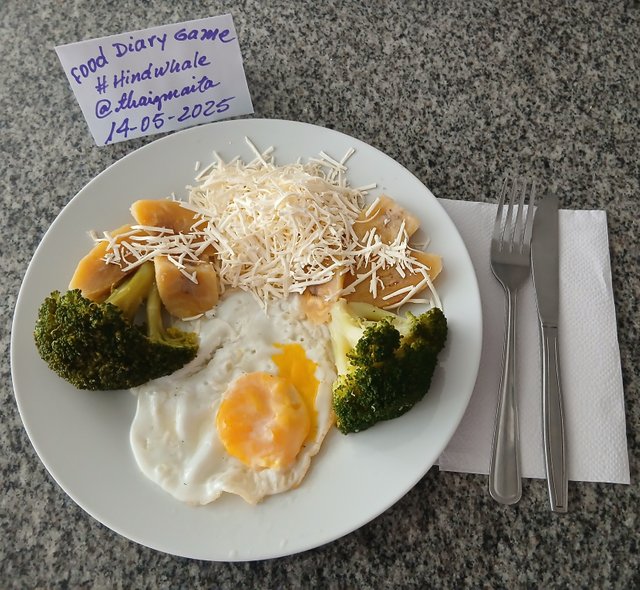 Food Diary Game
#Hindwhale
@thaigmaita
14-05-2025